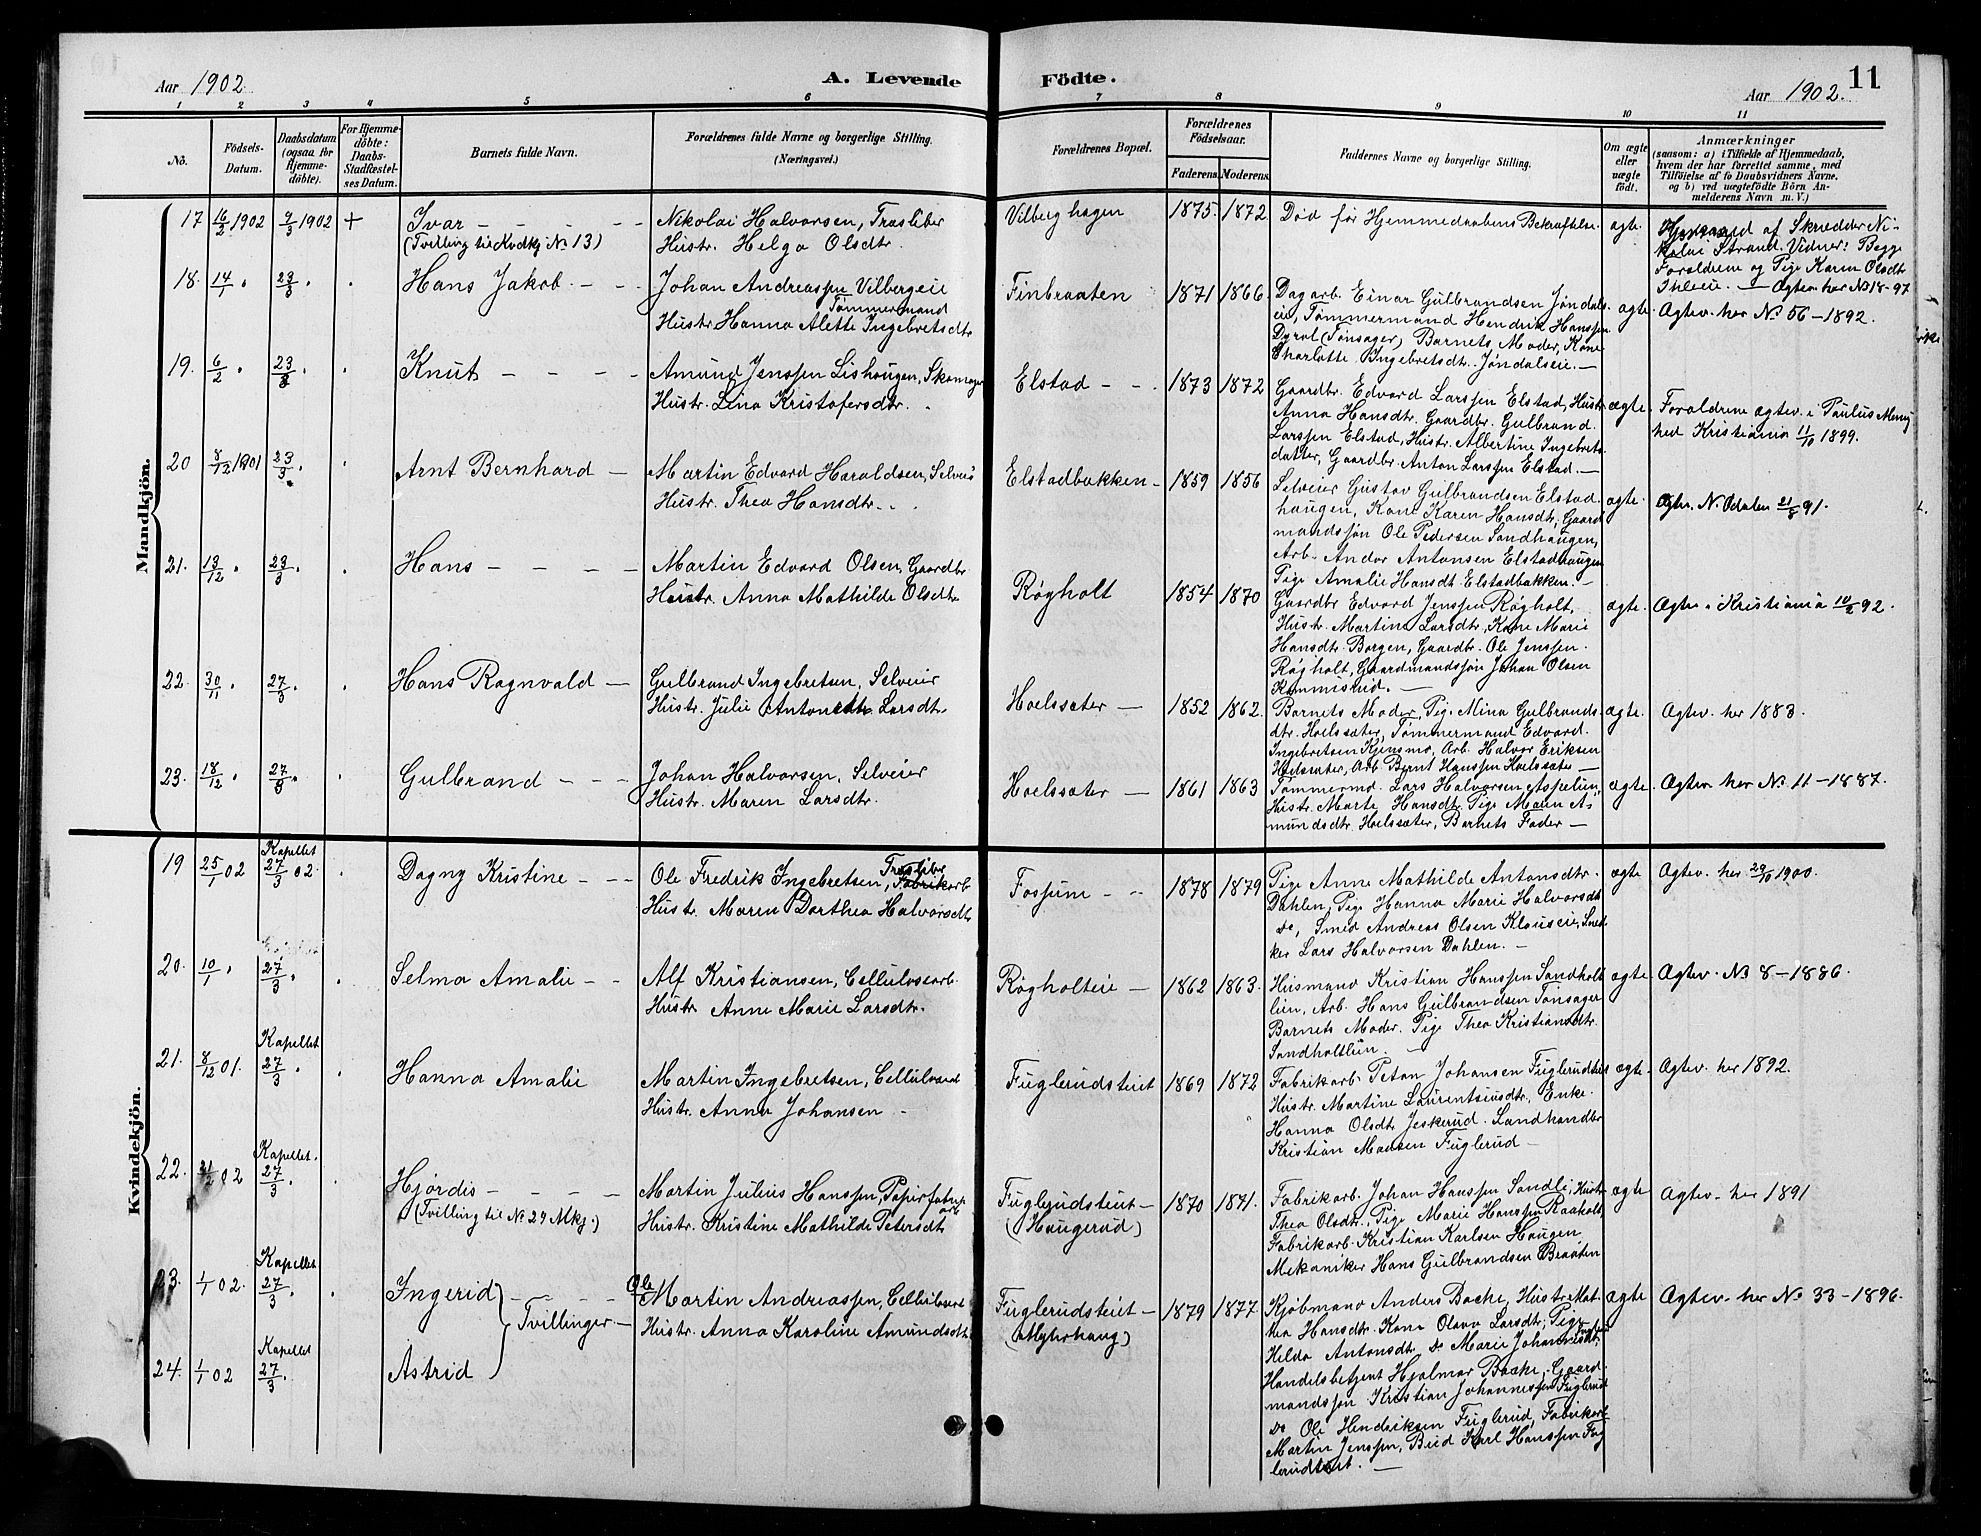 11
Aar 1902
A. Levende
Födte.
Aar 1902.
1 2 3 4 5 6 7 8 9 10 11
No.
Födsels-
Datum.
Daabsdatum
(ogsaa for
Hjemme-
döbte).
For Hjemme-
döbte:
Daabs-
Stadfæstel-
ses Datum.
Barnets fulde Navn.
Forældrenes fulde Navne og borgerlige Stilling.
(Næringsvei.)
Forældrenes Bopæl.
Forældrenes
Födselsaar.
Faderens. Moderens.
Faddernes Navne og borgerlige Stilling.
Om ægte
eller
uægte
födt.
Anmærkninger
(saasom: a) i Tilfælde af Hjemmedaab,
hvem der har forrettet samme, med
Tilföielse af to Daabsvidners Navne,
og b) ved uægtefödte Börn An-
melderens Navn m. V.)
Mandkjön.
17 16/2 1902 9/3 1902 + Ivar - - - - -
(Tvilling til Kvdkj No 13)
Nikolai Halvorsen, Træsliber
Hustr. Helga Olsdtr.
Vilberghagen 1875. 1872
Död før Hjemmedaabens Bekræftelse. ægte.
af Skrædder Ni-
kolai Strand. Vidner: Begge
Forældrene og Pige Karen Olsdtr
Ihleie. — Ægtev. her No 18-97
18. 14/1 " 23/3 . . Hans Jakob - -
Johan Andreassen Vilbergeie
Tømmermand
Hustr. Hanna Alette Ingebretsdtr
Finbraaten 1871 1866
Dagarb. Einar Gulbrandsen Jøndals
eie, Tømmermand Hendrik Hanssen
Dyrol (Tonsager) Barnets Moder, Kone
Charlotte Ingebretsdtr. Jøndalseie. —
ægte. Ægtev. her No 56-1892.
19. 6/2 " 23/3 . . Knut - - - -
Amund Jenssen Lishaugen, Skomager
Hustr. Lina Kristofersdtr.
Elstad - - 1873 1872
Gaardbr. Edvard Larssen Elstad, Hustr
Anna Hansdtr. Gaardbr. Gulbrand
Larssen Elstad, Hustr. Albertine Ingebrets
datter, Gaardbr. Anton Larssen Elstad. —
ægte. Forældrene ægtev. i Paulus Menig
hed Kristiania 11/10 1899.
20 8/12 1901 23/3 . Arnt Bernhard —
Martin Edvard Haraldsen, Selveier
Hustr. Thea Hansdtr.
Elstadbakken - 1859 1856
Selveier Gustav Gulbrandsen Elstad
haugen, Kone Karen Hansdtr, Gaard
mandssön Ole Pedersen Sandhaugen,
Arb. Andor Antonsen Elstadhaugen
Pige Amalie Hansdt Elstadbakken. —
ægte. Ægtev. N. Odalen 21/8 91.
21. 13/12 " 23/3 . . Hans - - - -
Martin Edvard Olsen, Gaardbr
Hustr. Anna Mathilde Olsdtr
Røgholt 1854 1870
Gaardbr Edvard Jenssen Røgholt,
Hustr. Martine Larsdtr, Kone Marie
Hansdtr. Borgen, Gaardbr. Ole Jenssen
Røgholt, Gaardmandssön Johan Olsen
Kommisrud. —
ægte. Ægtev. i Kristiania 10/2 92.
22. 30/11 " 27/3 . . Hans Ragnvald —
Gulbrand Ingebretsen, Selveier
Hustr. Julie Larsdtr
Hoelssæter — 1852 1862.
Barnets Moder, Pige Mina Gulbrands
dtr. Hoelssæter, Tømmermand Edvard
Ingebretsen Kjensmo, Arb. Halvor Eriksen
Hoelssæter, Arb Bernt Hanssen Hoelssæter —
ægte. Ægtev. her 1883.
23. 18/12 " 27/3 . Gulbrand - - -
Johan Halvorsen, Selveier
Hustr. Maren Larsdtr.
Hoelssæter — 1861 1863
Tømmermd. Lars Halvorsen Aspelien,
Hustr. Marte Hansdtr. Pige Maren A-
mundsdtr. Hoelssæter, Barnets Fader —
ægte. Ægtev. her No. 11-1887.
Kvindekjön.
19 25/1 02 Kapellet 27/3 02. . Dagny Kristine - - -
Ole Fredrik Ingebretsen, Træsliber Fabrikarb
Hustr. Maren Dorthea Halvorsdtr
Fossum - - 1878 1879
Pige Anne Mathilde Antonsdtr.
Dahlen, Pige Hanna Marie Halvorsdtr
do, Smed Andreas Olsen Klauseie, Sned
ker Lars Halvorsen Dahlen. —
ægte Ægtev. her 29/10 1900.
20. 10/1 " 27/3 . Selma Amalie - -
Alf Kristiansen, Cellulosearb.
Hustr Anne Marie Larsdtr.
Røgholteie — 1862 1863.
Husmand Kristian Hanssen Sandholt
lien, Arb. Hans Gulbrandsen Tonsager
Barnets Moder. Pige Thea Kristiansdtr.
Sandholtlien. —
ægte Ægtev. No 8-1886.
21. 8/12 01. Kapellet 27/3 . . Hanna Amalie
Martin Ingebretsen, Cellulosearb
Hustr. Anna Johansen —
Fuglerudsteiet 1869 1872
Fabrikarb. Johansen Fuglerudteiet
Hustr. Martine Laurentsiusdtr, Enke
Hanna Olsdtr Jeskerud. Landhandler
Kristian Madsen Fuglerud —
ægte. Ægtev. her 1892.
22. 21/2 02 Kapellet. 27/3 . . Hjørdis - - - -
(Tvilling til No 29 Mkj:)
Martin Julius Hanssen, Papirfabrik
arb
Hustr. Kristine Mathilde Petersdtr
Fuglerudsteiet —
(Haugerud)
1870 1871.
Fabrikarb. Johan Hanssen Sandli, Hustr
Thea Olsdtr., Pige Marie Hanssen Raaholt,
Fabrikarb. Kristian Karlsen Haugen
Mekaniker Hans Gulbrandsen Braaten
ægte Ægtev. her 1891
23. 1/1 02. Kapellet 27/3 . Ingerid - - - -
Tvillinger —
Ole Martin Andreassen, Cellulosearb
Hustr. Anna Karoline Amundsdtr
Fuglerudsteiet —
(Myhrhaug)
1879 1877.
Kjøbmand Anders Bache, Hustr Mat
hea Hansdtr. Kone Olava Larsdtr; Pige
Hilda Antonsdt. Do Marie Johannesdt,
Handelsbetjent Hjalmar Bache, Gaard
mandssön Kristian Johannessen Fuglerud
Do Ole Hendriksen Fuglerud, Fabrikarb
Martin Jenssen, Bud Karl Hanssen Fug
lerudteiet. —
ægte Ægtev. her No 33-1896.
24. 1/1 02 Kapellet 27/3. Astrid